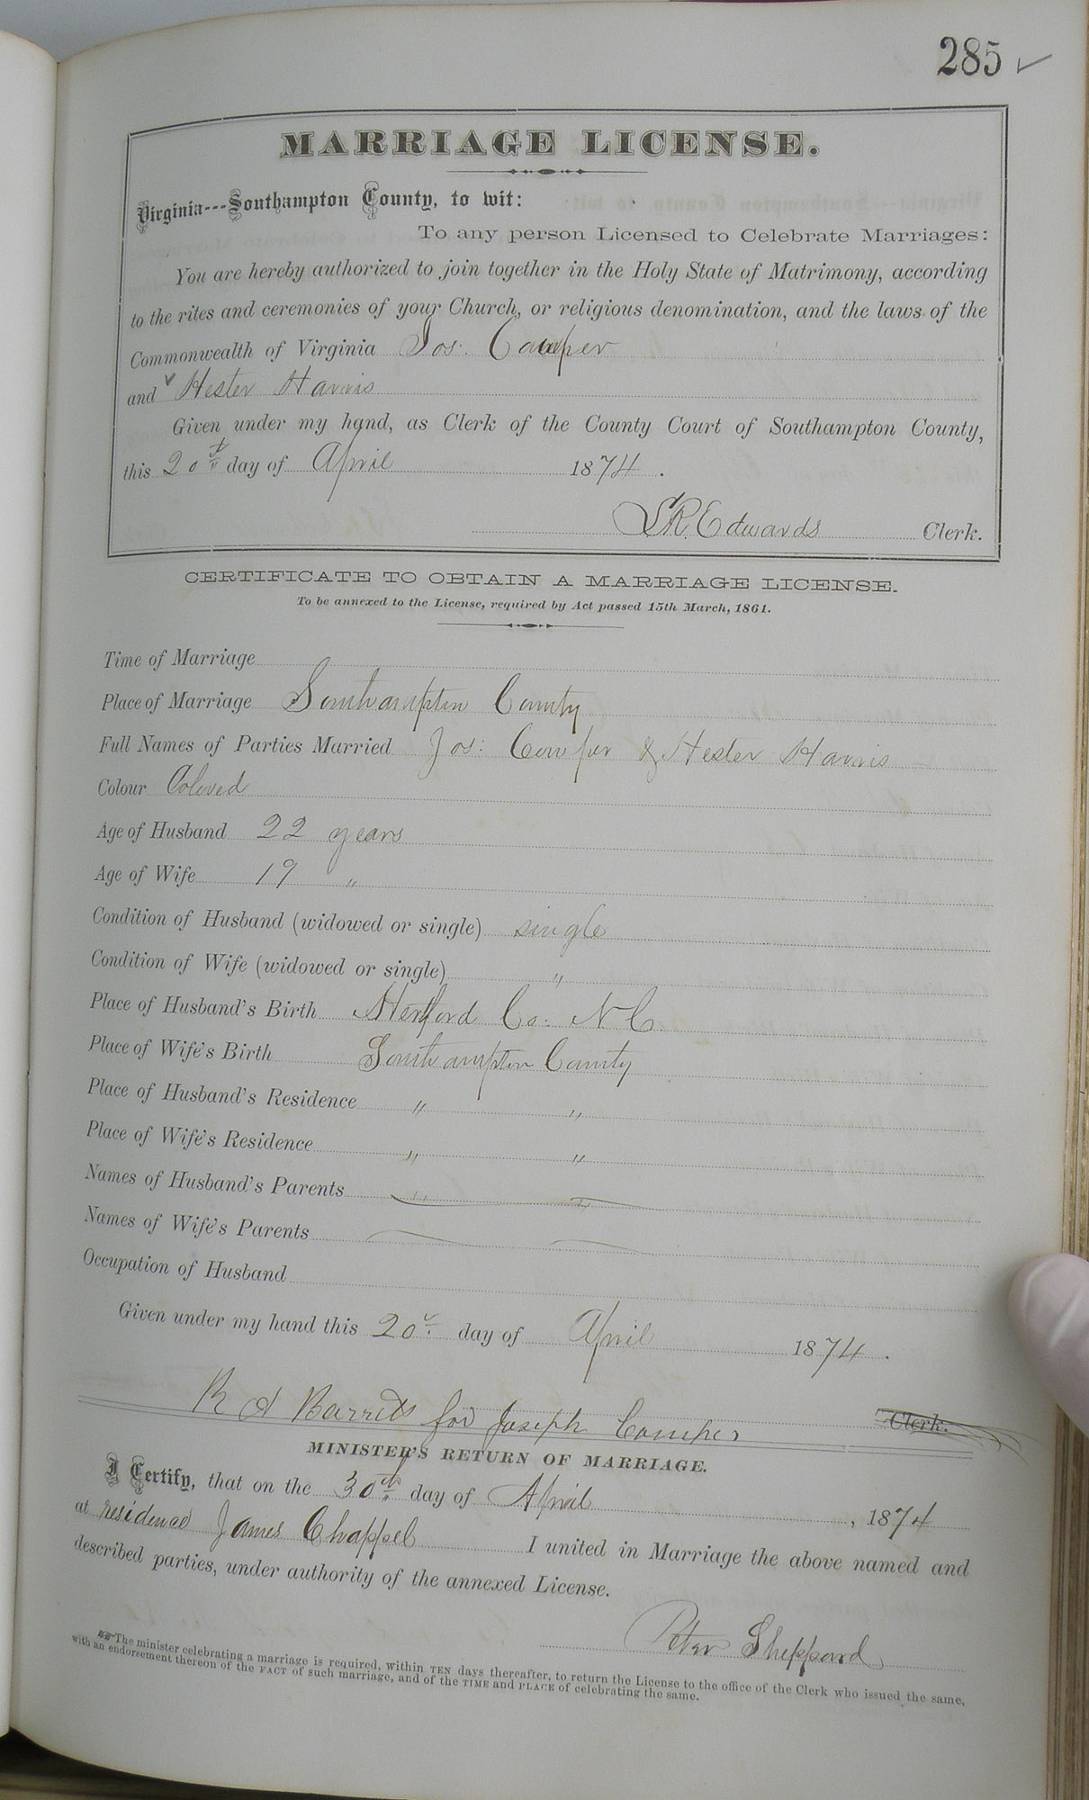 285 ✓
MARRIAGE LICENSE.
Virginia---Southampton County, to wit:
To any person Licensed to Celebrate Marriages:
You are hereby authorized to join together in the Holy State of Matrimony, according
to the rites and ceremonies of your Church, or religious denomination, and the laws of the
Commonwealth of Virginia Jos: Cowper
and Hester Harris
Given under my hand, as Clerk of the County Court of Southampton County,
this 20th day of April 1874.
LR Edwards Clerk.
CERTIFICATE TO OBTAIN A MARRIAGE LICENSE.
To be annexed to the License, required by Act passed 15th March, 1861.
Time of Marriage
Place of Marriage Southampton County
Full Names of Parties Married Jos: Cowper & Hester Harris
Colour Colored
Age of Husband 22 years
Age of Wife 19 "
Condition of Husband (widowed or single) single
Condition of Wife (widowed or single) "
Place of Husband's Birth Hertford Co. N C
Place of Wife's Birth Southampton County
Place of Husband's Residence " "
Place of Wife's Residence " "
Names of Husband's Parents " "
Names of Wife's Parents
Occupation of Husband
Given under my hand this 20th day of April 1874.
R A Barrett for Joseph Cowper Clerk.
MINISTER'S RETURN OF MARRIAGE.
I Certify, that on the 30th day of April, 1874
at residence James Chappel I united in Marriage the above named and
described parties, under authority of the annexed License.
Peter Sheppard
The minister celebrating a marriage is required, within TEN days thereafter, to return the License to the office of the Clerk who issued the same,
with an endorsement thereon of the FACT of such marriage, and of the TIME and PLACE of celebrating the same.